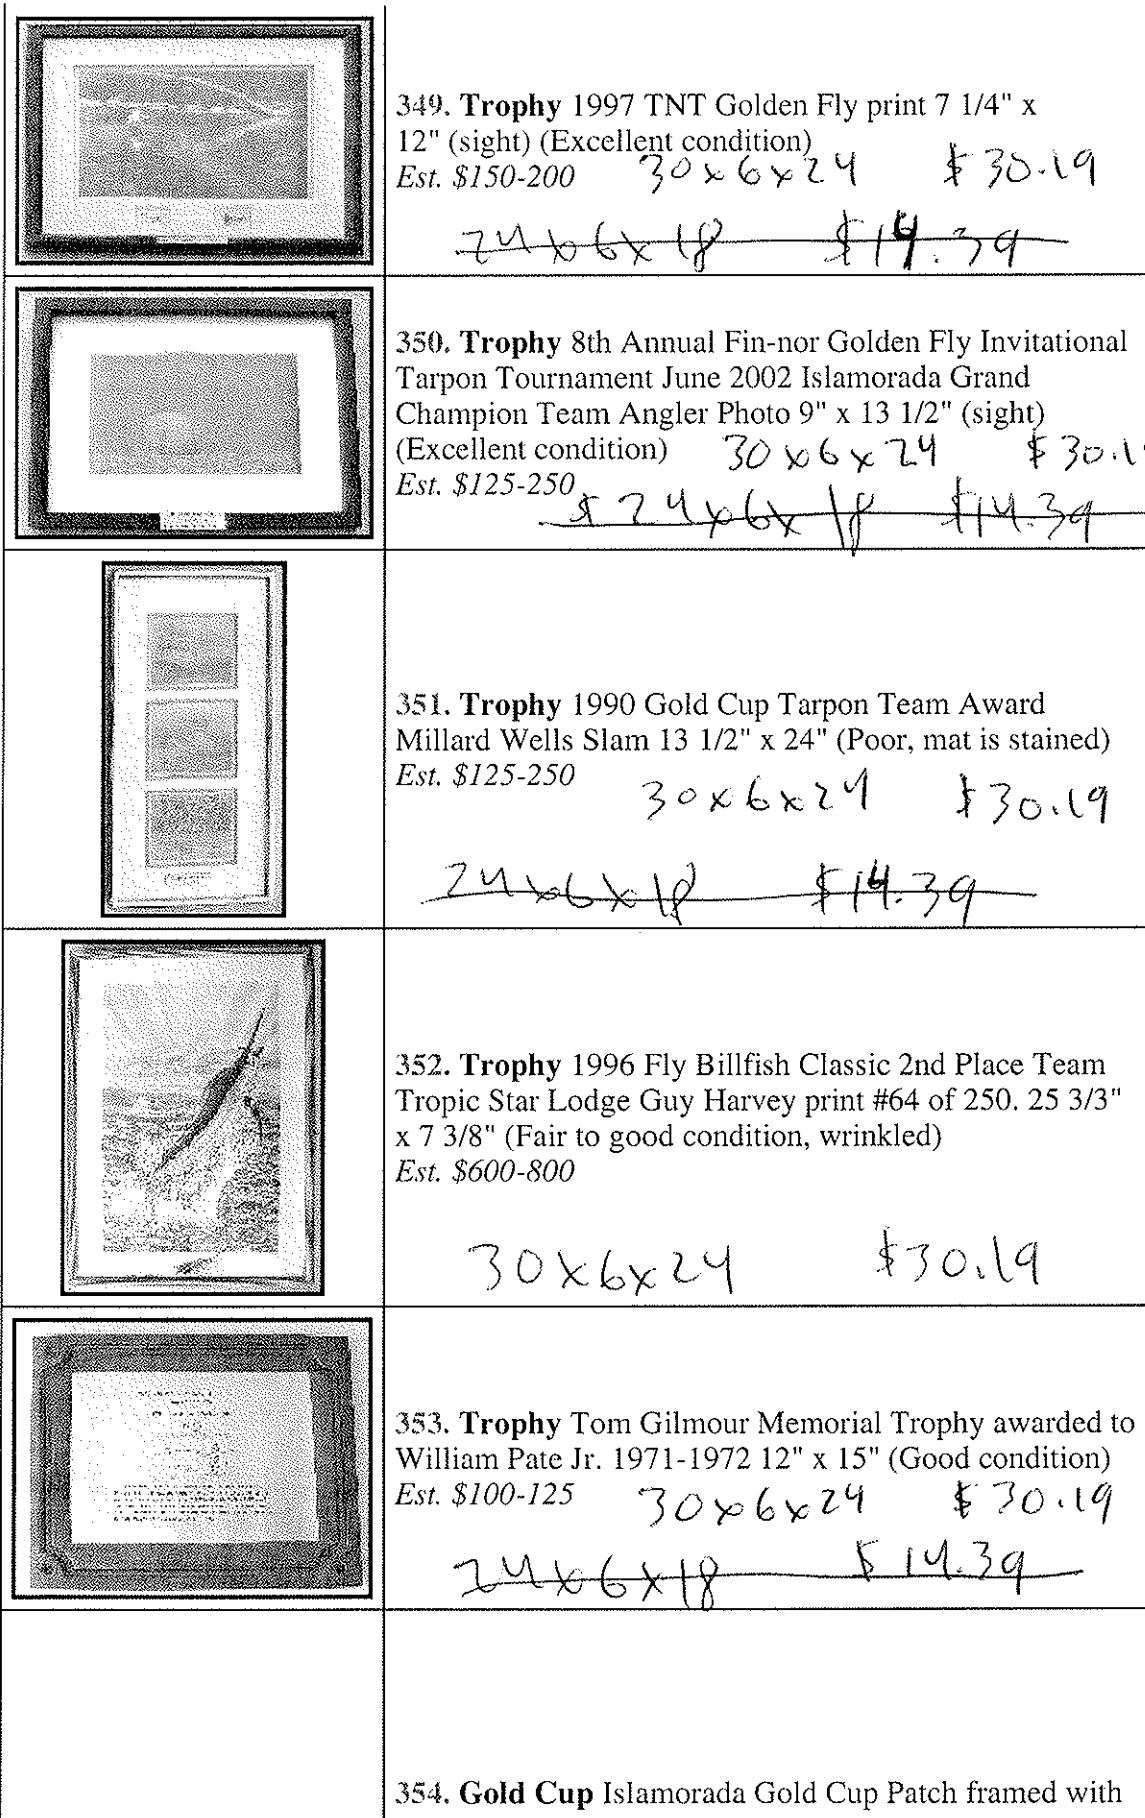 349. Trophy 1997 TNT Golden Fly print 7 1/4" x
12" (sight) (Excellent condition)
Est. $150-200 30x6x24 $30.19
24x6x18 $14.39
350. Trophy 8th Annual Fin-nor Golden Fly Invitational
Tarpon Tournament June 2002 Islamorada Grand
Champion Team Angler Photo 9" x 13 1/2" (sight)
(Excellent condition) 30x6x24 $30.1
Est. $125-250
$ 24x6x18 $14.39
351. Trophy 1990 Gold Cup Tarpon Team Award
Millard Wells Slam 13 1/2" x 24" (Poor, mat is stained)
Est. $125-250
30x6x24 $30.19
24x6x18 $14.39
352. Trophy 1996 Fly Billfish Classic 2nd Place Team
Tropic Star Lodge Guy Harvey print #64 of 250. 25 3/3"
x 7 3/8" (Fair to good condition, wrinkled)
Est. $600-800
30x6x24 $30.19
353. Trophy Tom Gilmour Memorial Trophy awarded to
William Pate Jr. 1971-1972 12" x 15" (Good condition)
Est. $100-125 30x6x24 $30.19
24x6x18 $14.39
354. Gold Cup Islamorada Gold Cup Patch framed with